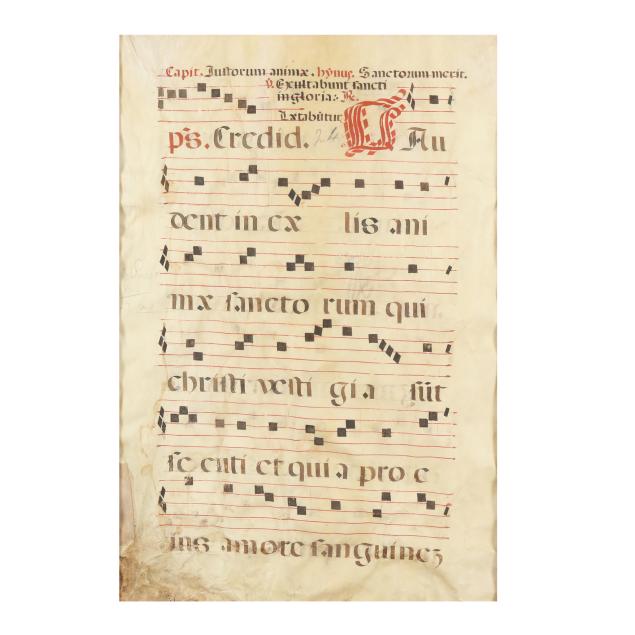 Capit. Justorum animæ. hymꝰ. Sanctorum merit.
℣. Exultabunt sancti
in gloria: ℟.
Lætabũtur
ps. Credid. 24 Gau
dent in cæ lis ani
mæ sancto rum qui
christi vesti gi a sũt
se cuti et qui a pro e
ius amore sanguinez